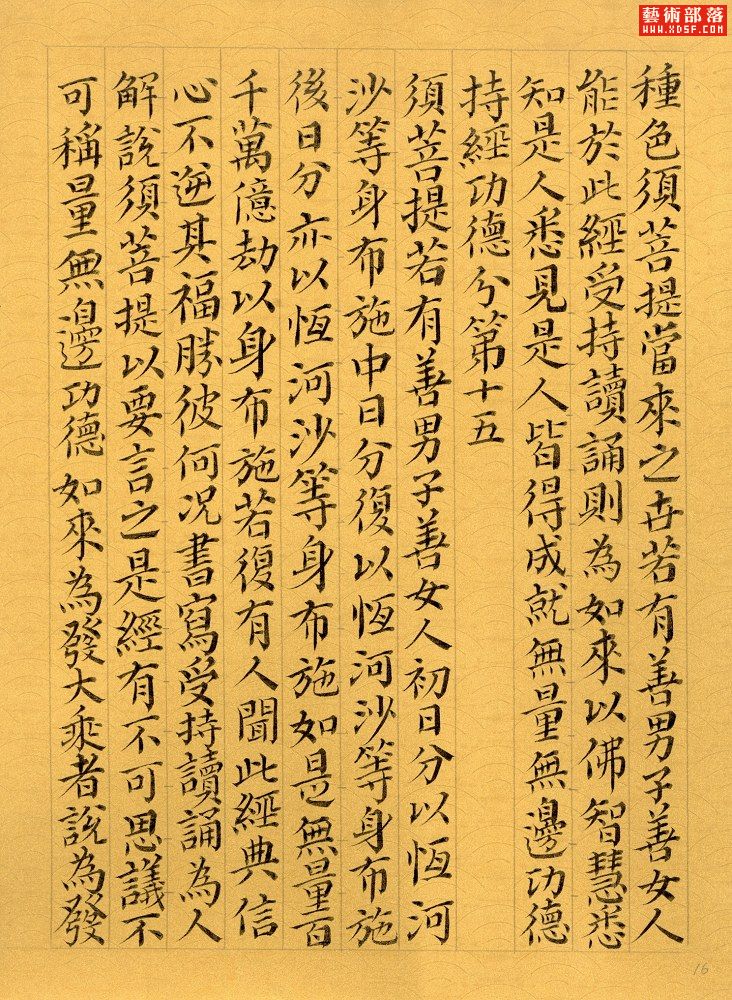 藝術部落
WWW.XDSF.COM
種色須菩提當來之世若有善男子善女人
能於此經受持讀誦則為如來以佛智慧悉
知是人悉見是人皆得成就無量無邊功德
持經功德分第十五
須菩提若有善男子善女人初日分以恆河
沙等身布施中日分復以恆河沙等身布施
後日分亦以恆河沙等身布施如是無量百
千萬億劫以身布施若復有人聞此經典信
心不逆其福勝彼何況書寫受持讀誦為人
解說須菩提以要言之是經有不可思議不
可稱量無邊功德如來為發大乘者說為發
16